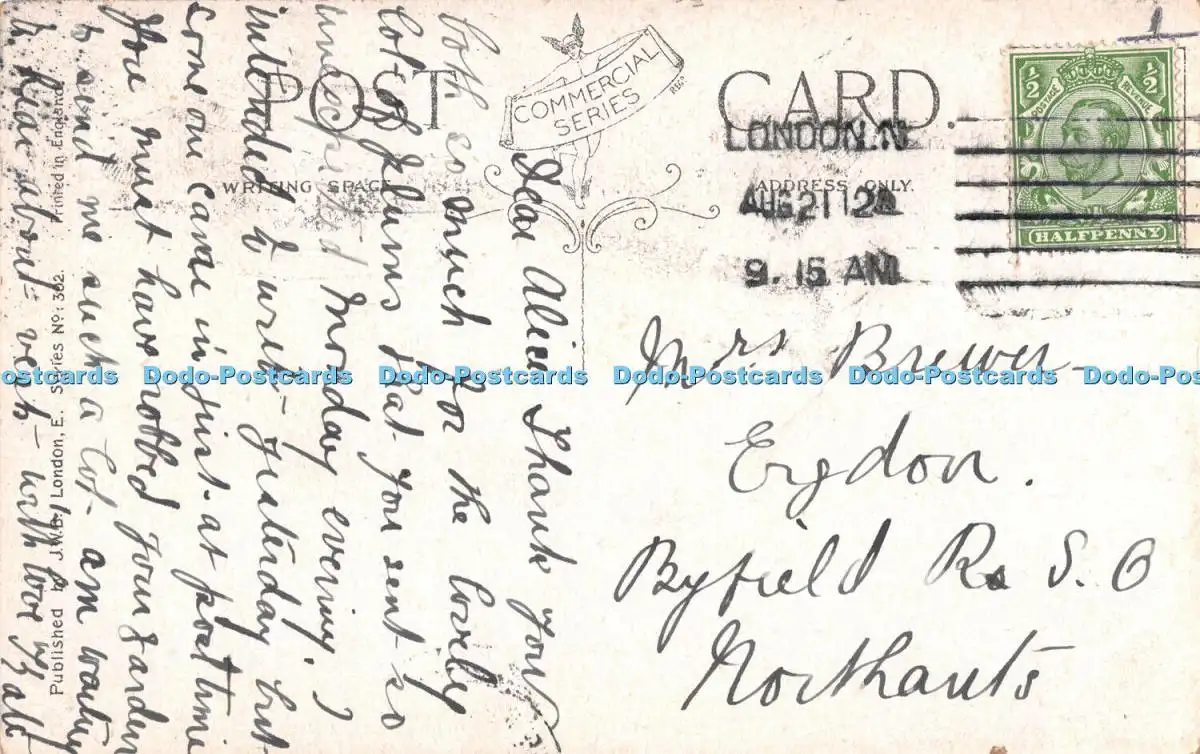 POST CARD.
COMMERCIAL SERIES
REGD
WRITING SPACE
ADDRESS ONLY.
LONDON. N
AUG 21 12
9. 15 AM
½ ½
POSTAGE REVENUE
HALFPENNY
Mrs Brewer
Eydon.
Byfield R. S. O
Northants
Dear Alice Thank you
both so much for the lovely
lot of plums that you sent so
Monday evening. I
intended to write yesterday but
some one came in just at post time
You must have robbed your garden
to send me such a lot. am waiting
to hear about with love
Published by J.W.B., London, E. Series No: 302. Printed in England
Dodo-Postcards Dodo-Postcards Dodo-Postcards Dodo-Postcards Dodo-Postcards